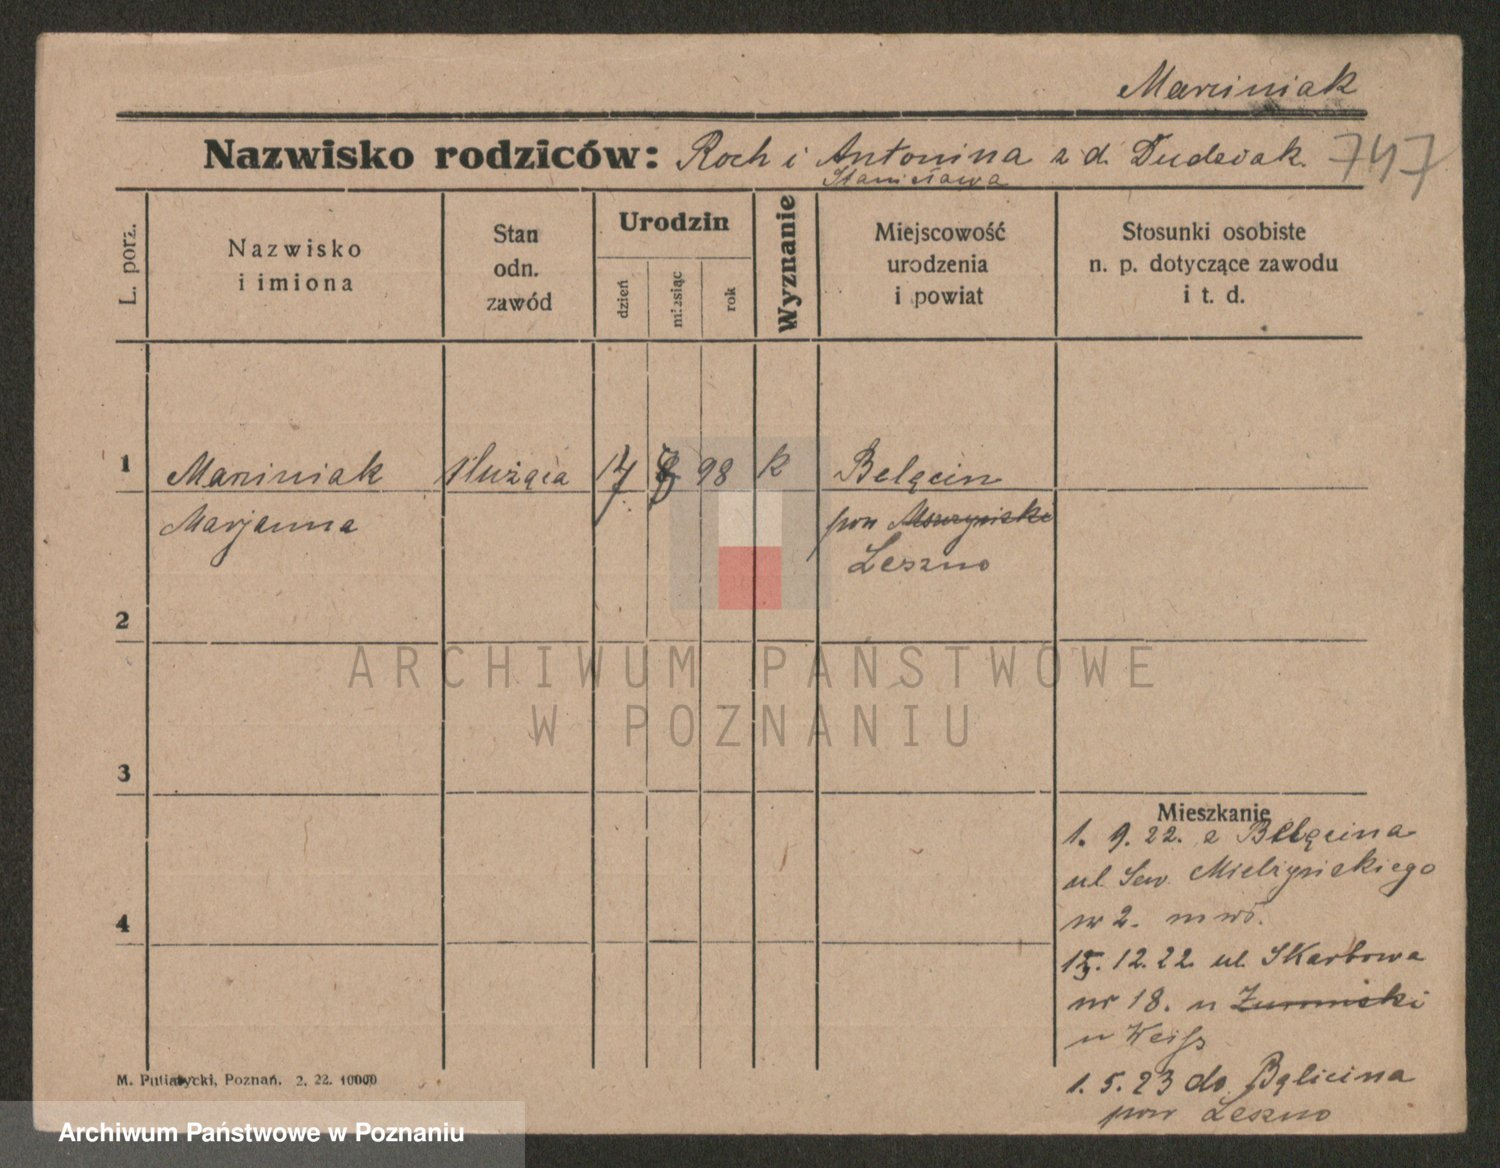 Marciniak
Nazwisko rodziców: Roch i Antonina z d. Dudziak 747
Stanisława
L. porz.
Nazwisko
i imiona
Stan
odn.
zawód
Urodzin
dzień
miesiąc
rok
Wyznanie
Miejscowość
urodzenia
i powiat
Stosunki osobiste
n. p. dotyczące zawodu
i t. d.
1
Marciniak służąca 17 8 98 k Belęcin
Marjanna pow
Leszno
2
3
4
Mieszkanie
1. 9. 22. z Belęcina
ul Sew. Mielżyńskiego
nr 2.
15. 12. 22 ul Skarbowa
nr 18. u Żurowski
u Weiss
1. 5. 23 do Bęlicina
pow Leszno
M. Putiatycki, Poznań. 2. 22. 10000
ARCHIWUM PAŃSTWOWE
W POZNANIU
Archiwum Państwowe w Poznaniu